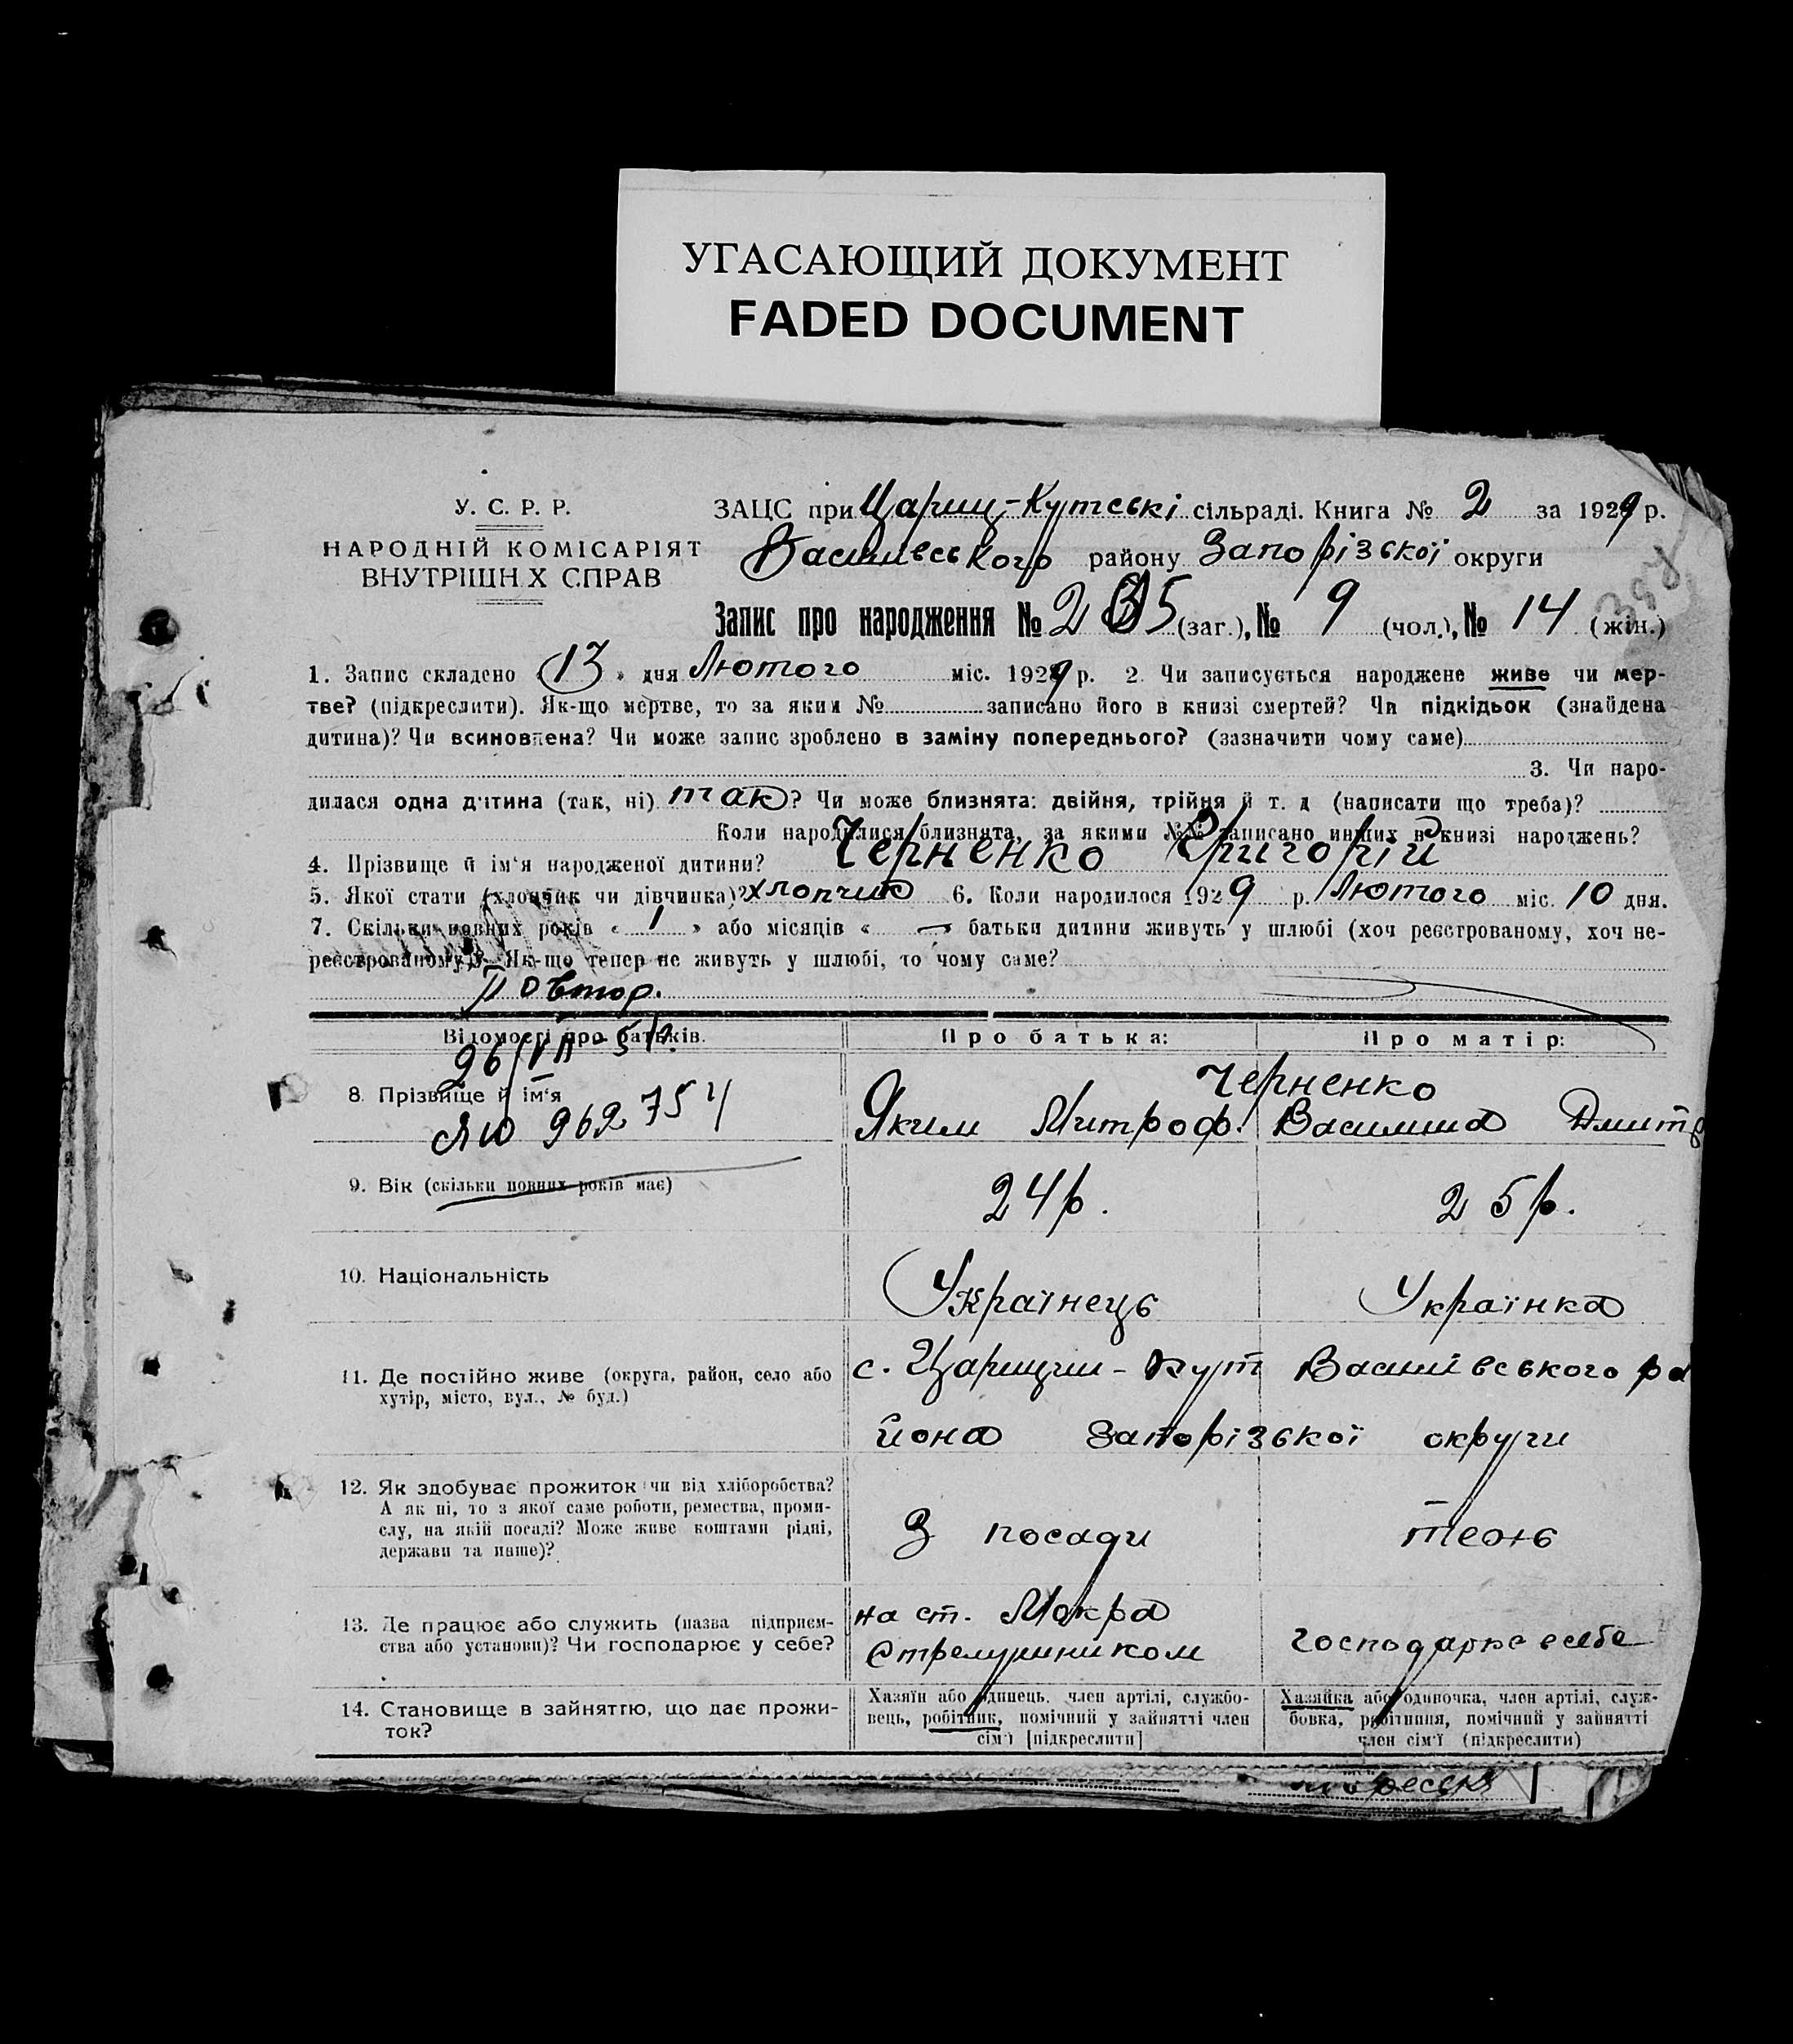 УГАСАЮЩИЙ ДОКУМЕНТ
FADED DOCUMENT
У. С. Р. Р.
НАРОДНІЙ КОМІСАРІЯТ
ВНУТРІШН Х СПРАВ
ЗАЦС при Цариц-Кутські сільраді. Книга № 2 за 1929 р.
Василівського району Запорізької округи
Запис про народження № 2 5 (заг.), № 9 (чол.), № 14 (жін.)
1. Запис складено « 13 » дня Лютого міс. 1929 р. 2. Чи записується народжене живе чи мер-
тве? (підкреслити). Як-що мертве, то за яким № записано його в книзі смертей? Чи підкідьок (знайдена
дитина)? Чи всиновлена? Чи може запис зроблено в заміну попереднього? (зазначити чому саме)
3. Чи наро-
дилася одна дитина (так, ні) так? Чи може близнята: двійня, трійня й т. д (написати що треба)?
Коли народилися близнята, за якими №№ записано инших в книзі народжень?
4. Прізвище й ім'я народженої дитини? Черненко Григорій
5. Якої стати (хлопчик чи дівчинка)? хлопчик 6. Коли народилося 1929 р. Лютого міс. 10 дня.
7. Скільки повних років « 1 » або місяців « — » батьки дитини живуть у шлюбі (хоч реєстрованому, хоч не-
реєстрованому)? Як-що тепер не живуть у шлюбі, то чому саме?
Повтор.
Відомості про батьків. Про батька: Про матір:
26/VII-51р.
Черненко
8. Прізвище й ім'я Яким Митроф. Василина Дмитр
ЯЮ 962754
9. Вік (скільки повних років має) 24р. 25р.
10. Національність Українець Українка
11. Де постійно живе (округа, район, село або с. Царицин-Кут Василівського ра
хутір, місто, вул., № буд.)
йона Запорізької округи
12. Як здобуває прожиток чи від хліборобства?
А як ні, то з якої саме роботи, ремества, проми-
слу, на якій посаді? Може живе коштами рідні, З посади теж
держави та инше)?
13. Де працює або служить (назва підприєм- на ст. Мокра
ства або установи)? Чи господарює у себе? Стрелушником
14. Становище в зайняттю, що дає прожи-
ток?
Хазяїн або одинець, член артілі, службо-
вець, робітник, помічний у зайнятті член
сім'ї [підкреслити]
Хазяйка або одиночка, член артілі, служ-
бовка, робітниця, помічний у зайнятті
член сім'ї (підкреслити)